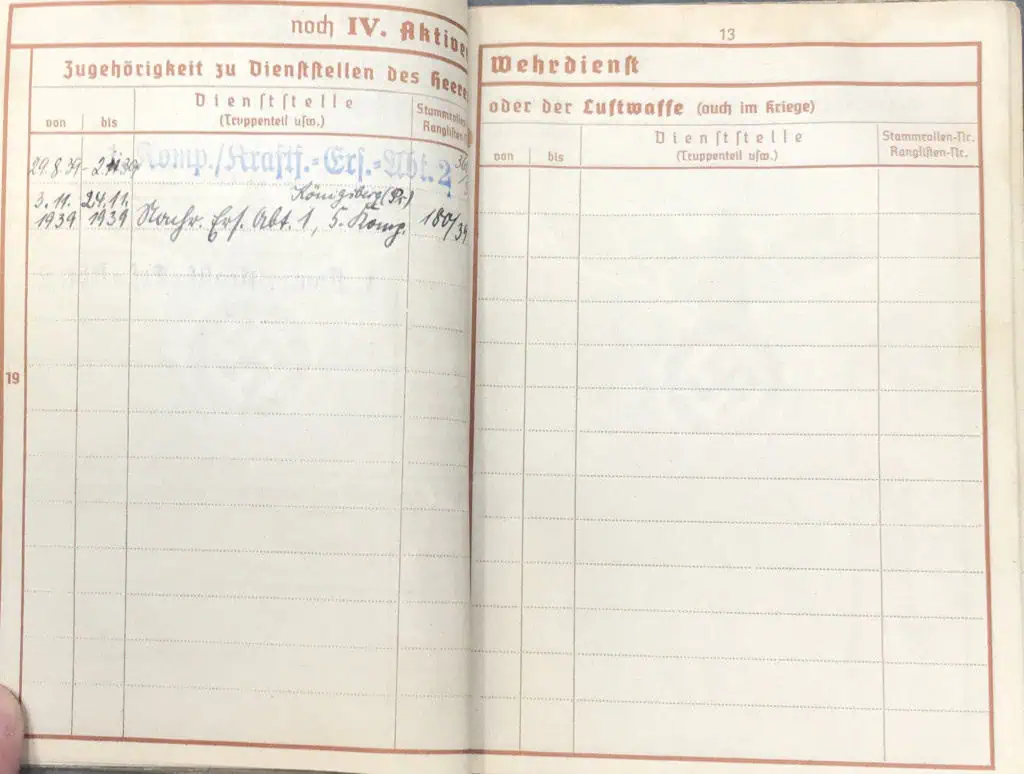 noch IV. Aktiver
Zugehörigkeit zu Dienststellen des Heeres
von bis Dienststelle
(Truppenteil usw.) Stammrollen-
Ranglisten-
29.8.39 - Komp./Kraftf.-Ers.-Abt. 2
Königsberg (Pr)
3.11. 24.11.
1939 1939 Nachr. Ers. Abt. 1, 5. Komp. 180/39
19
13
Wehrdienst
oder der Luftwaffe (auch im Kriege)
von bis Dienststelle
(Truppenteil usw.) Stammrollen-Nr.
Ranglisten-Nr.